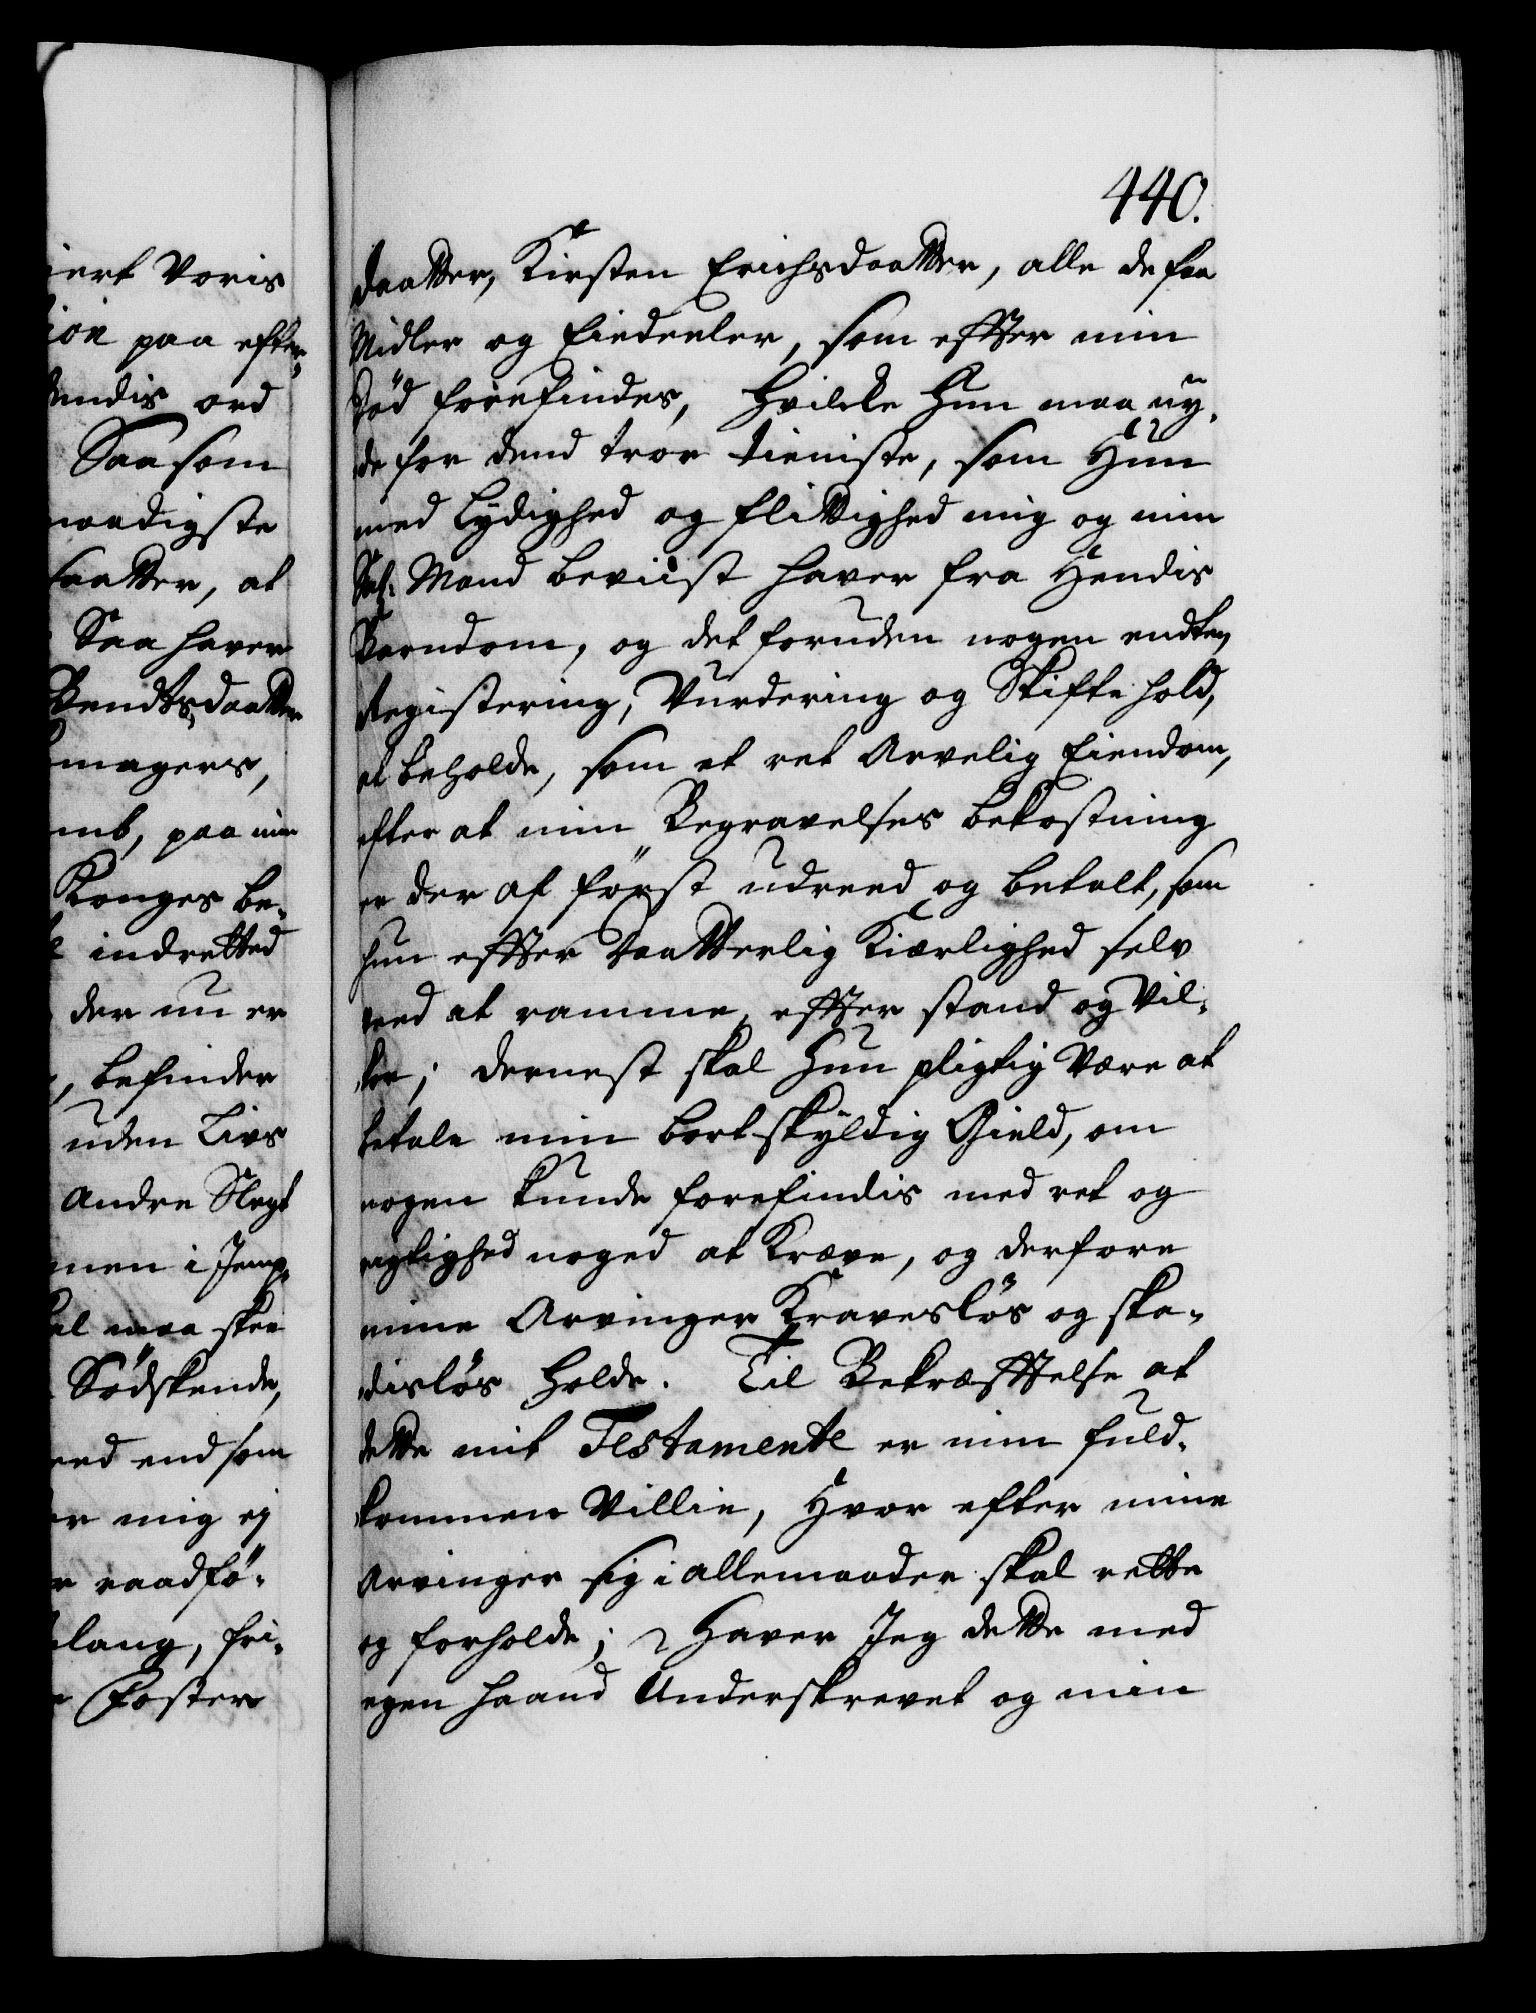 iert Voris
tion paa efter-
endis ord
Saasom
naadigste
saatter, at
Saa haver
Bendtsdaatter
magers,
mb, paa min
Konges be-
indretted
der nu er
, befinder
uden Livs
andre Slegt
men i Jemp-
al maa skee
Södskende,
eed end som
er mig ej
r raadfö-
lang, fri-
Foster
440.
daatter, Kirsten Erichsdaatter, alle de faa
Midler og Eiendeeler, som effter min
Död forefindes, Hvilcke Hun maa ny-
de for dend troe tieniste, som Hun
med Lydighed og flittighed mig og min
Sal: Mand beviist haver fra Hendis
Barndom, og det foruden nogen endten
Registering, Vurdering og Skifte hold,
at beholde, som et ret Arvelig Eiendom,
efter at min Begravelses bekostning
er der af först udreed og betalt, som
hun effter daatterlig Kiærlighed selv
veed at ramme, effter stand og Vil-
kor; dernest skal Hun pligtig Være at
betale min bortskyldig Gield, om
nogen kunde forefindis med ret og
rigtighed noged at Kræve, og derfore
mine Arvinger Kravesløs og ska-
disløs Holde. Til Bekræfftelse at
dette mit Testamente er min fuld-
kommen Villie, Hvor efter mine
Arvinger sig i allemaader skal rette
og forholde; Haver Jeg dette med
egen Haand Underskrevet og min